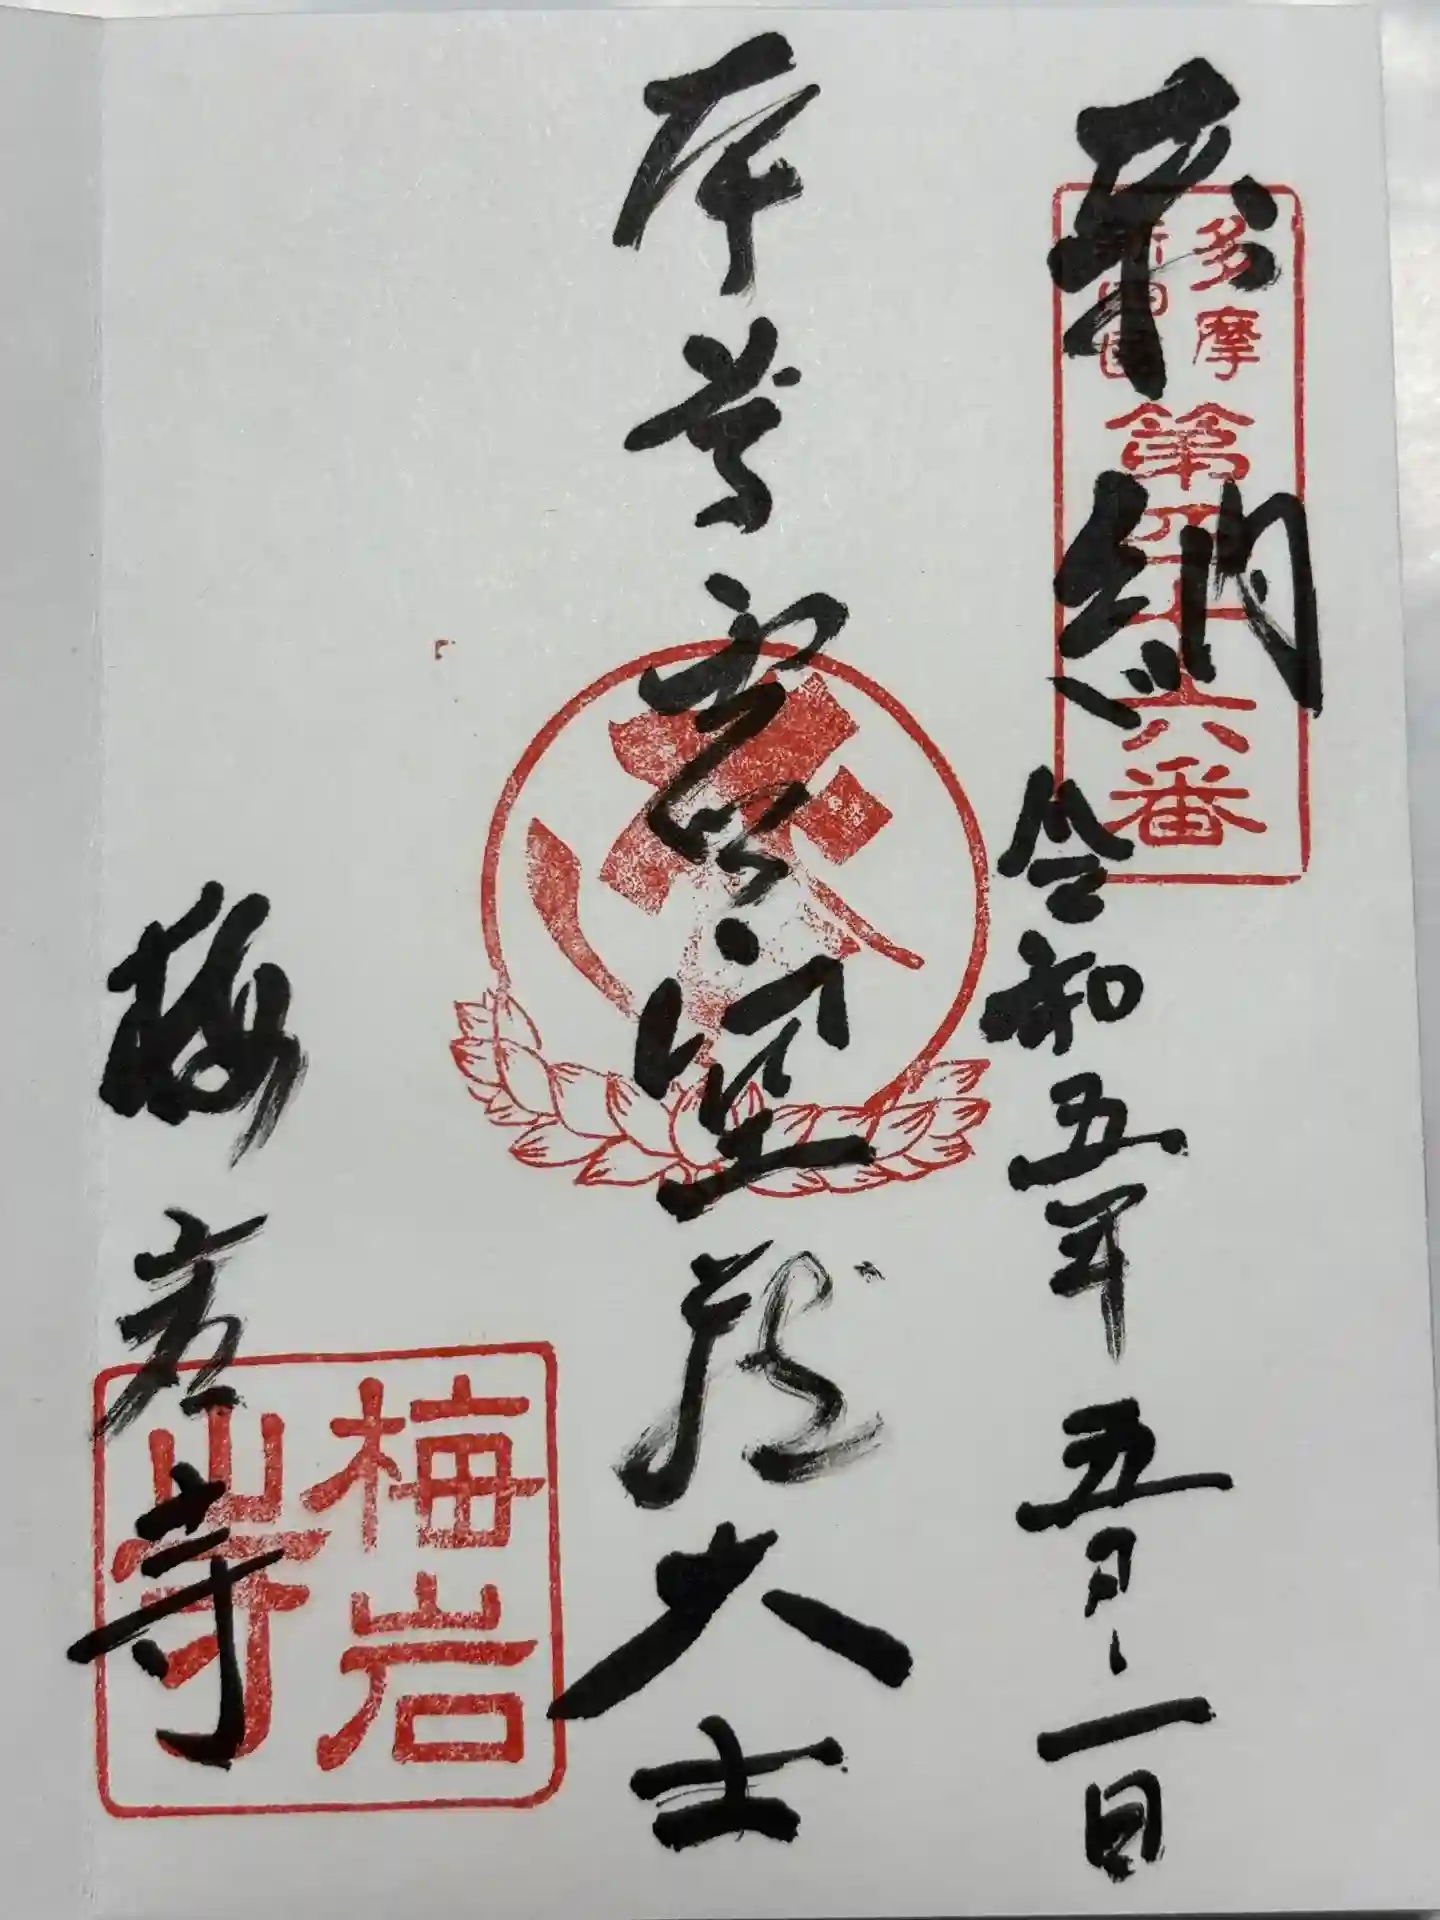 奉納
令和五年五月一日
多摩
新四国
第四十六番
本尊虚空蔵大士
梅岩寺
梅岩
寺